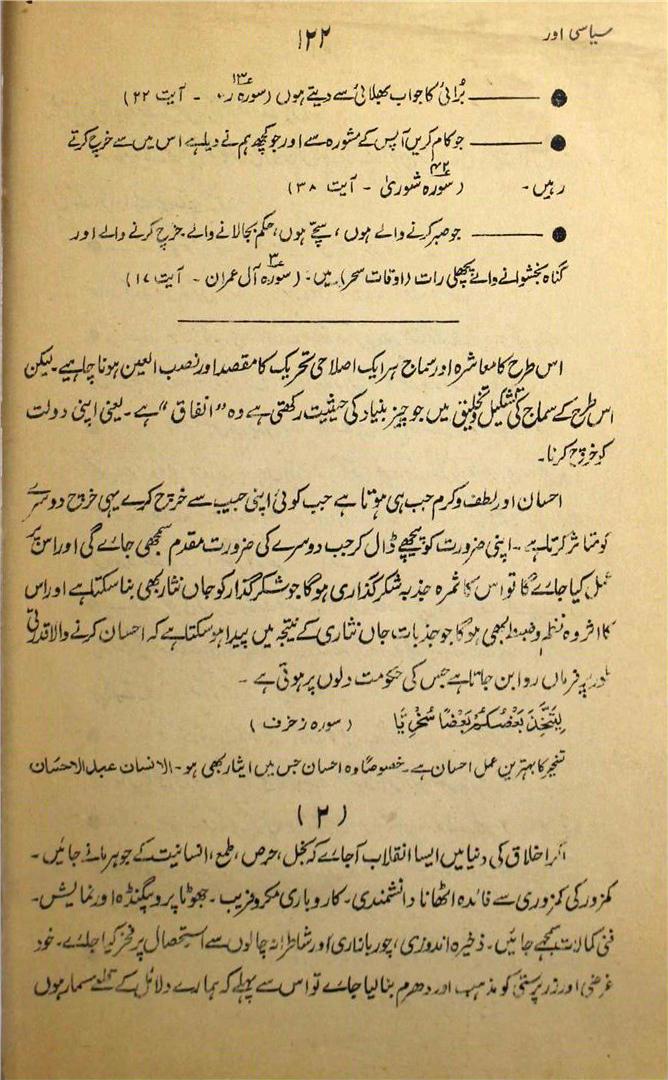 سیاسی اور
۱۲۲
● ——— برُائی کا جواب بھلائی سے دیتے ہوں (سورہ ۱۳ؔ رعد - آیت ۲۲)
● ——— جو کام کریں آپس کے مشورہ سے اور جو کچھ ہم نے دیا ہے اس میں سے خرچ کرتے
رہیں - (سورہ ۴۲ؔ شوریٰ - آیت ۳۸)
● ——— جو صبر کرنے والے ہوں، سچّے ہوں، حکم بجالانے والے خرچ کرنے والے اور
گناہ بخشوانے والے پچھلی رات (اوقات سحر) میں - (سورہ ۳ؔ آل عمران - آیت ۱۷)
اس طرح کا معاشرہ اور سماج ہر ایک اصلاحی تحریک کا مقصد اور نصب العین ہونا چاہیے۔ لیکن
اس طرح کے سماج کی تشکیل و تخلیق میں جو چیز بنیاد کی حیثیت رکھتی ہے وہ "انفاق" ہے۔ یعنی اپنی دولت
کو خرچ کرنا۔
احسان اور لطف و کرم جب ہی ہوتا ہے جب کوئی اپنی جیب سے خرچ کرے یہی خرچ دوسرے
کو متاثر کرتا ہے۔ اپنی ضرورت کو پیچھے ڈال کر جب دوسرے کی ضرورت مقدم سمجھی جائے گی اور اس پر
عمل کیا جائے گا تو اس کا ثمرہ جذبہ شکر گذاری ہوگا جو شکر گذار کو جاں نثار بھی بنا سکتا ہے اور اس
کا اثر وہ نظم و ضبط بھی ہوگا جو جذبات جاں نثاری کے نتیجہ میں پیدا ہو سکتا ہے کہ احسان کرنے والا قدرتی
طور پر فرماں روا بن جاتا ہے جس کی حکومت دلوں پر ہوتی ہے -
لِيَتَّخِذَ بَعْضُكُمْ بَعْضًا سُخْرِيًّا (سورہ زخرف)
تسخیر کا بہترین عمل احسان ہے۔ خصوصًا وہ احسان جس میں ایثار بھی ہو - الانسان عبد الاحسان
(۲)
اگر اخلاق کی دنیا میں ایسا انقلاب آجائے کہ بخل، حرص، طمع، انسانیت کے جوہر مانے جائیں -
کمزور کی کمزوری سے فائدہ اٹھانا دانشمندی - کاروباری مکر و فریب - جھوٹا پروپیگنڈہ اور نمایش -
فنی کمالات سمجھے جائیں - ذخیرہ اندوزی، چور بازاری اور شاطرانہ چالوں سے استحصال پر فخر کیا جائے - خود
غرضی اور زر پرستی کو مذہب اور دھرم بنا لیا جائے تو اس سے پہلے کہ ہمارے دلائل کے مسمار ہوں